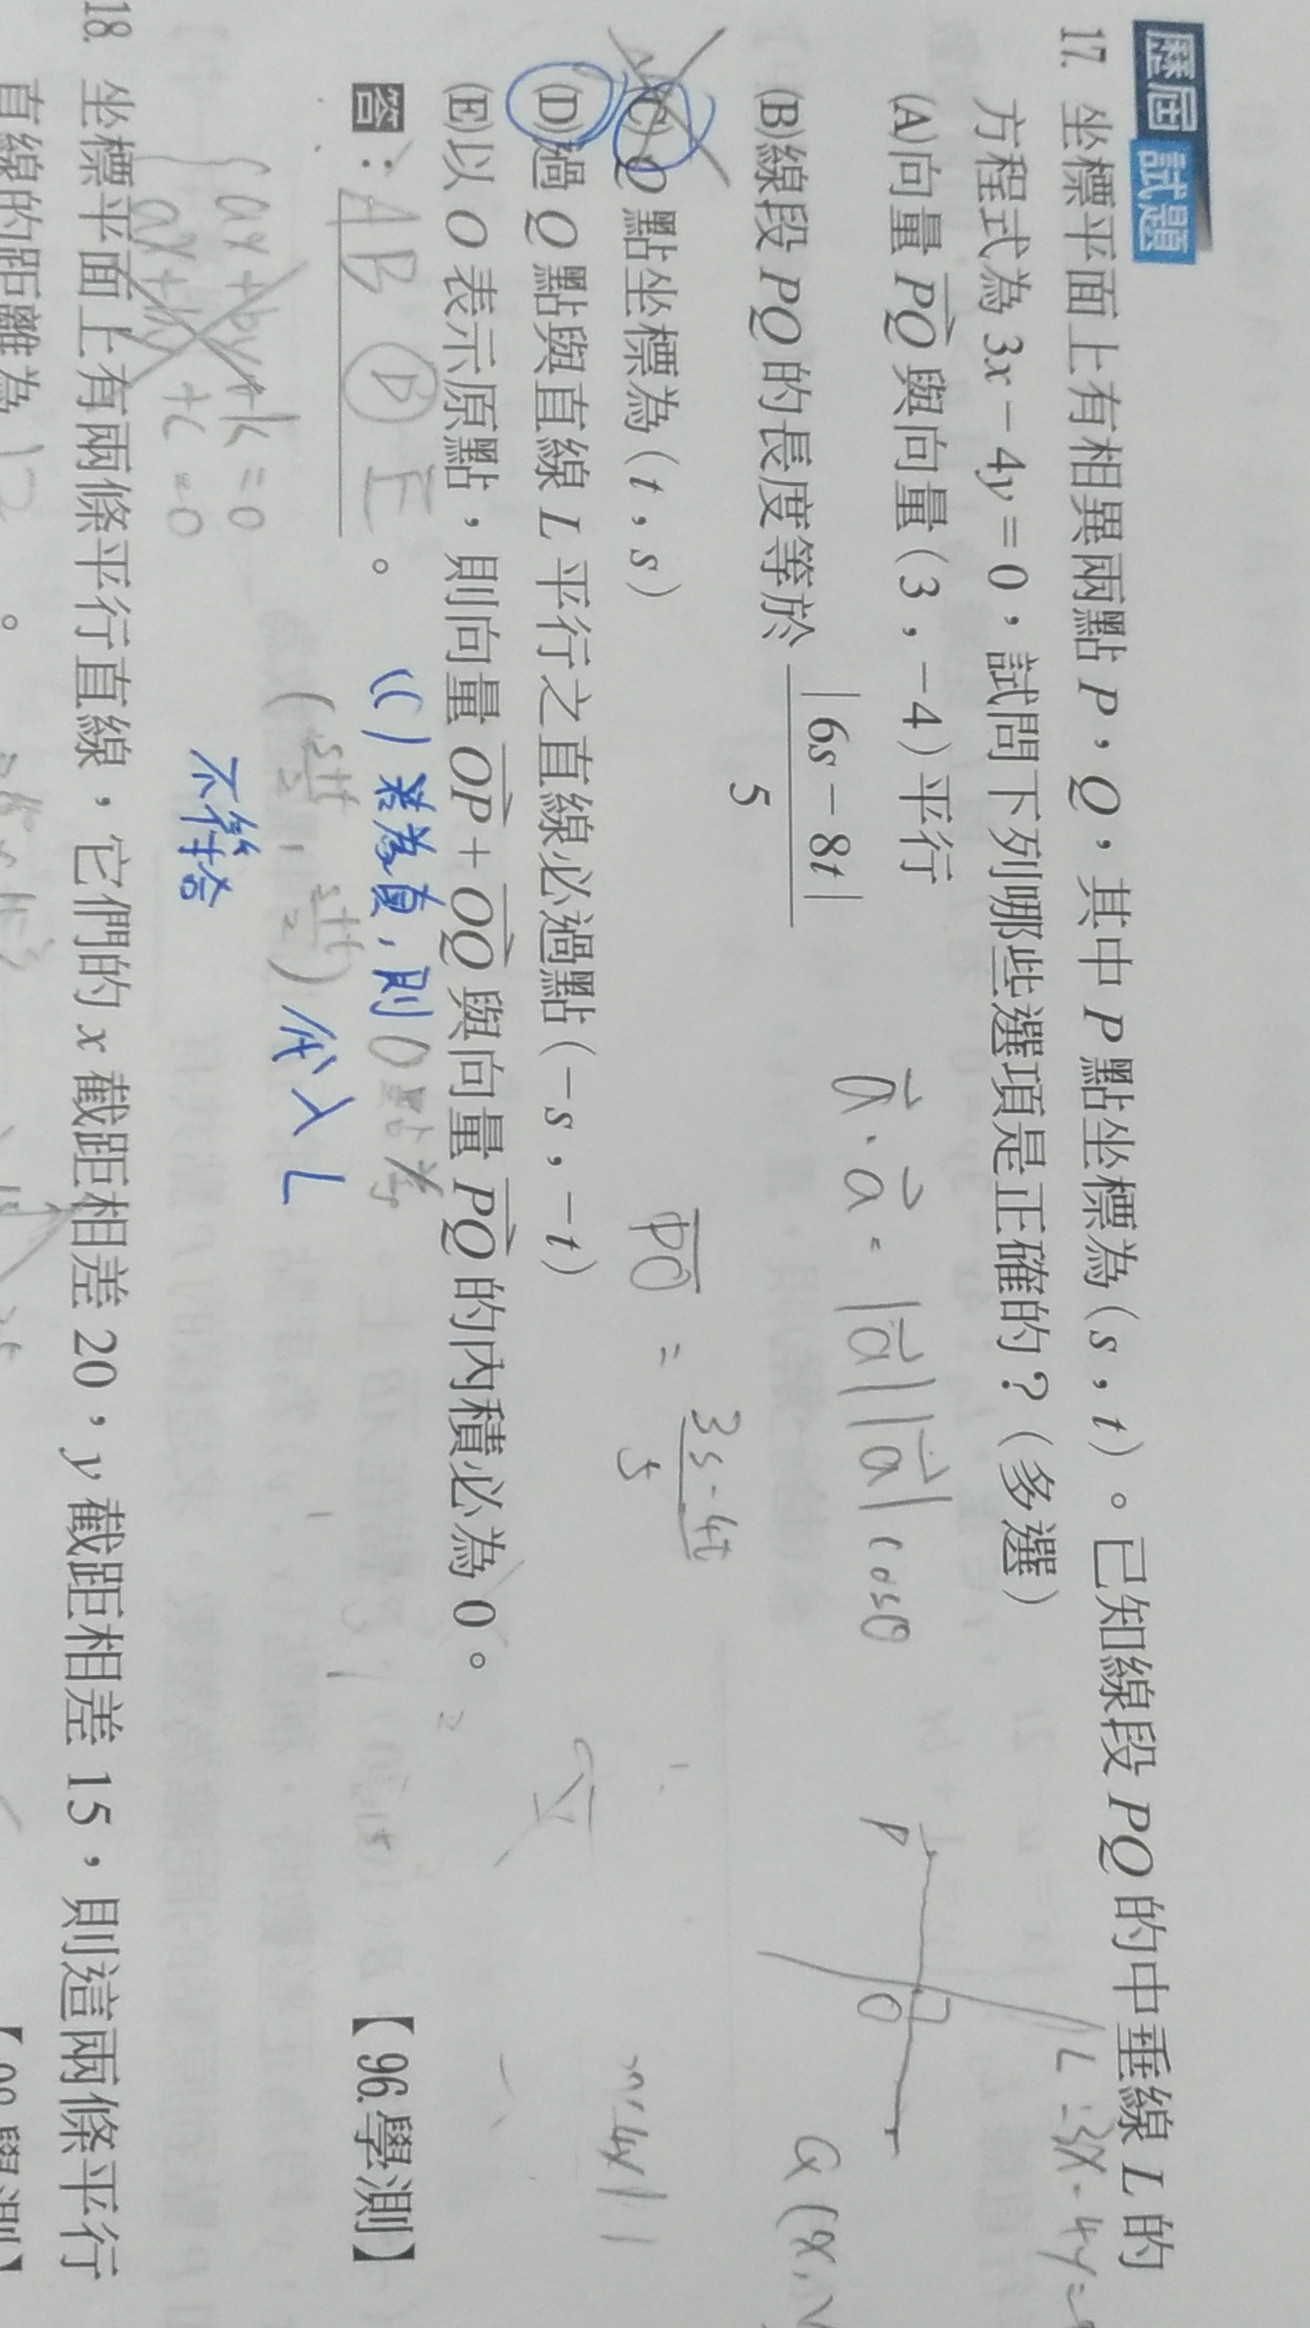 歷屆試題
17. 坐標平面上有相異兩點 P,Q,其中 P 點坐標為(s,t)。已知線段 PQ 的中垂線 L 的
方程式為 3x-4y=0,試問下列哪些選項是正確的?(多選)
L=3x-4y=
(A)向量 PQ 與向量(3,-4)平行
a·a=|a||a|cosθ
P
O
Q(x,y
(B)線段 PQ 的長度等於 |6s-8t| / 5
PO = 3s-4t / 5
(C)Q 點坐標為(t,s)
(D)過 Q 點與直線 L 平行之直線必過點(-s,-t)
(E)以 O 表示原點,則向量 OP+OQ 與向量 PQ 的內積必為 0。
答:AB D E。
【96.學測】
(C)若為真,則O點為
(s+t/2, s+t/2)代入L
不符合
ax+by+k=0
ax+by+c=0
18. 坐標平面上有兩條平行直線,它們的 x 截距相差 20,y 截距相差 15,則這兩條平行
直線的距離為 12 。